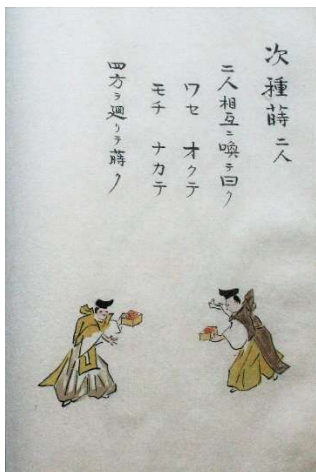 次種蒔 二人
二人相互ニ喚テ曰ク
ワセ オクテ
モチ ナカテ
四方ヲ廻リテ蒔ク